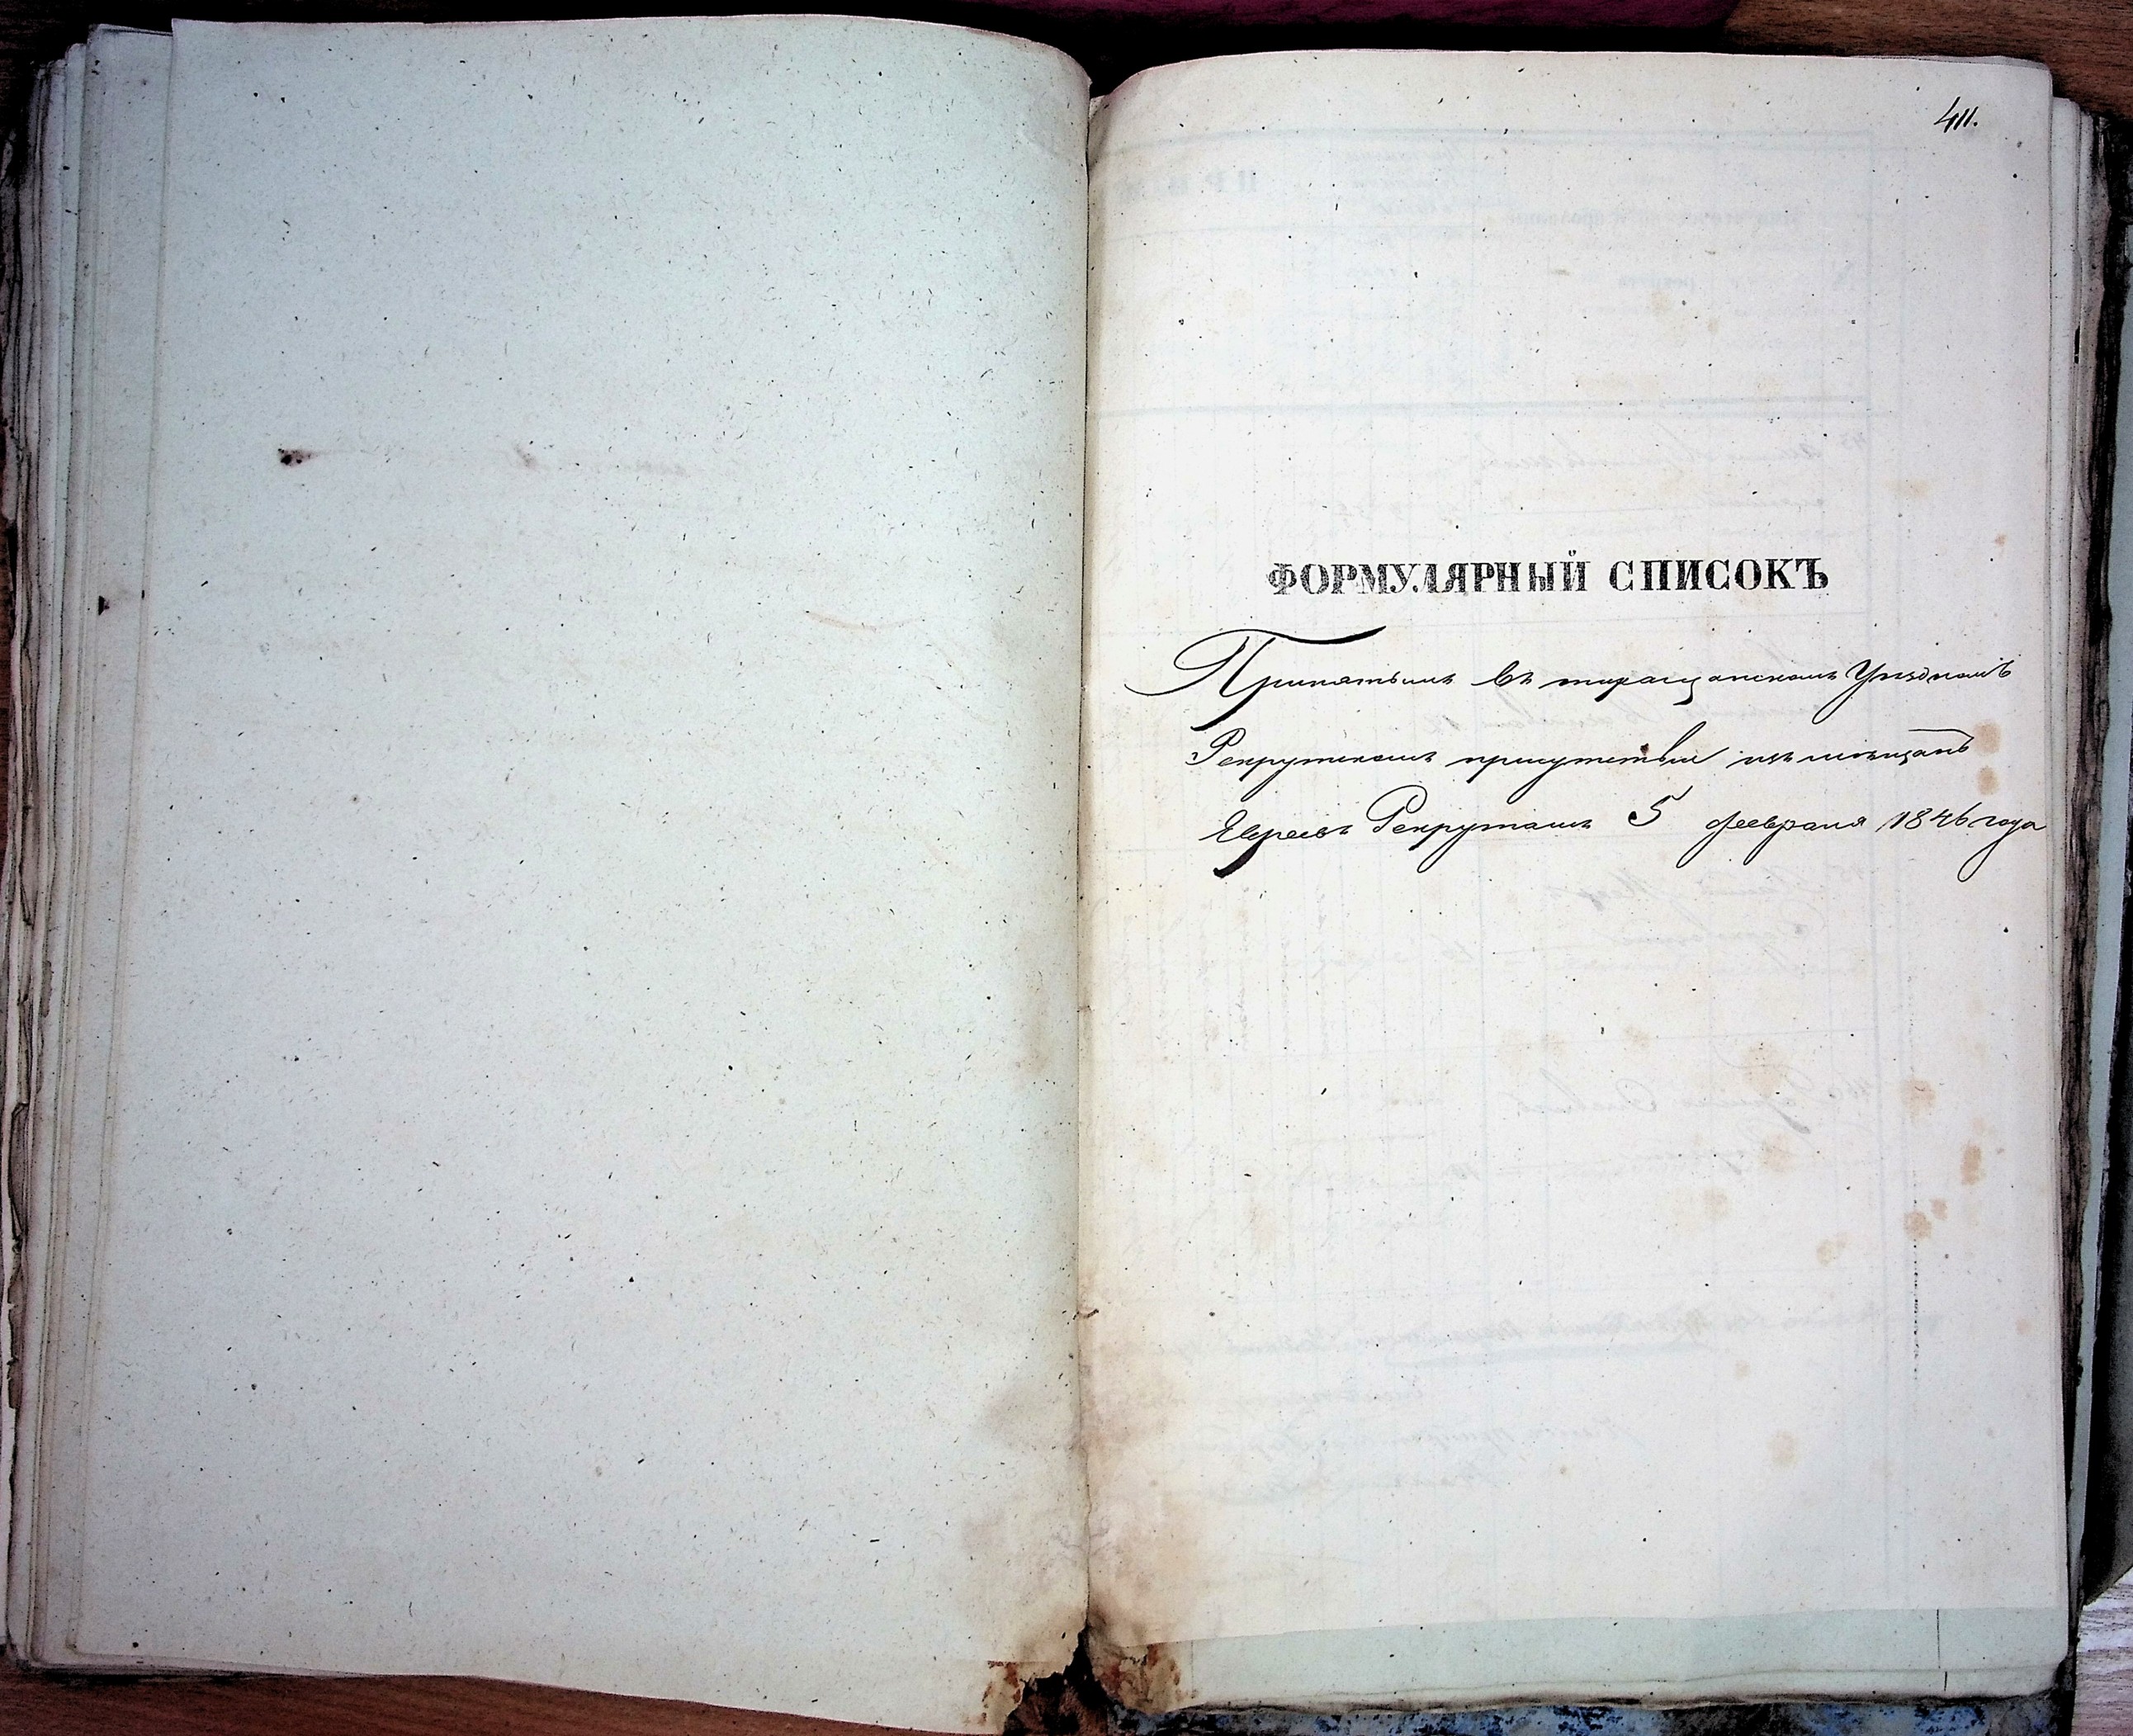 411.
ФОРМУЛЯРНЫЙ СПИСОКЪ
Принятымъ въ таращанскомъ Уѣздномъ
Рекрутскомъ присутствіи изъ мѣщанъ
Евреевъ Рекрутамъ 5 февраля 1846 года